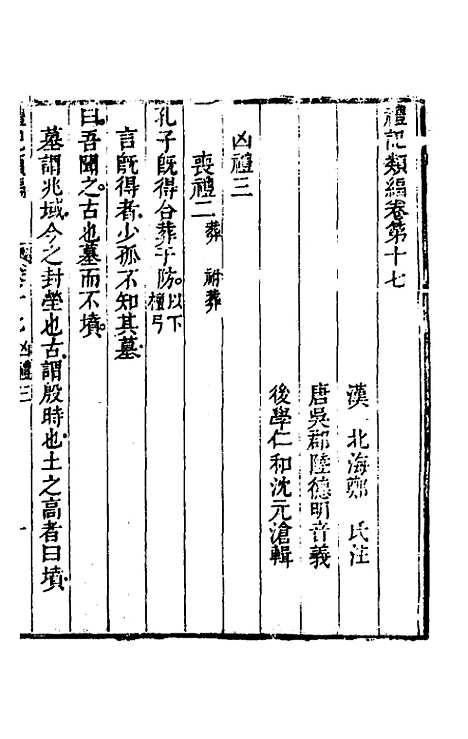 禮記類編卷第十七
漢 北海鄭 氏注
唐吳郡陸德明音義
後學仁和沈元滄輯
凶禮三
喪禮二 葬 祔葬
孔子既得合葬于防。以下檀弓
言既得者少孤不知其墓
曰。吾聞之。古也墓而不墳。
墓謂兆域今之封塋也古謂殷時也土之高者曰墳
禮記類編 卷十七 凶禮三 一